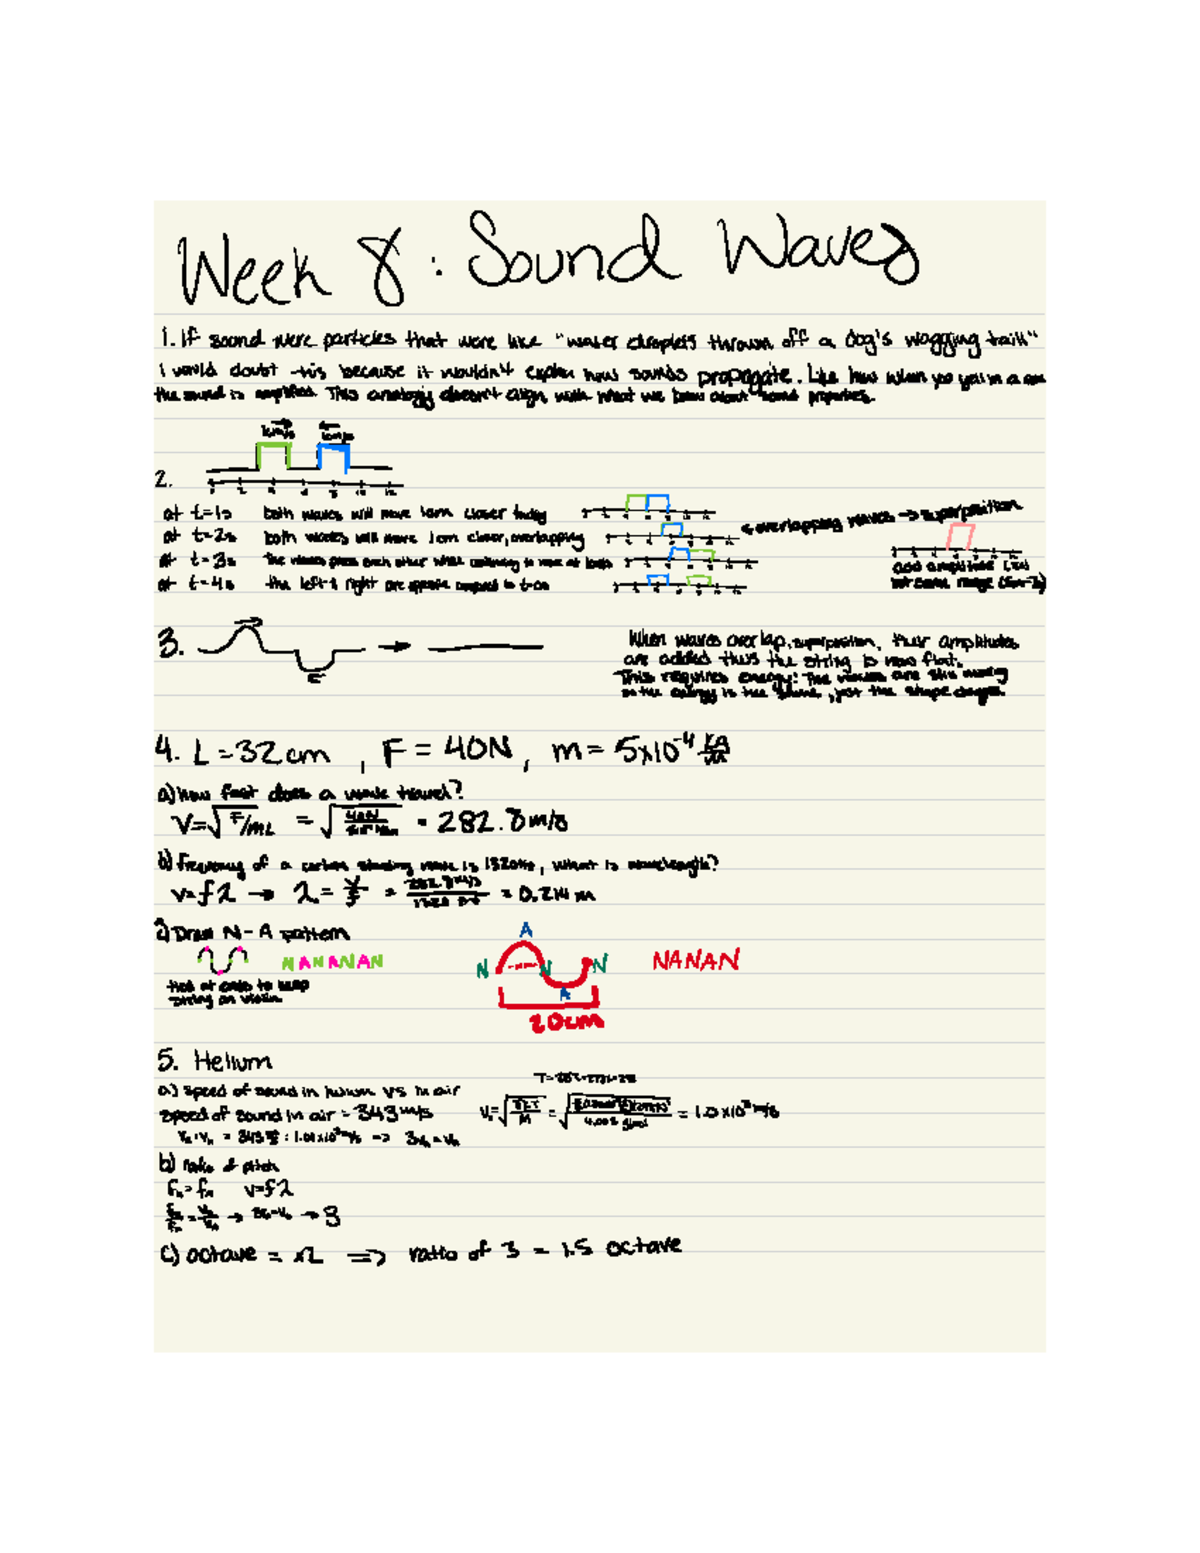 Week 8: Sound Waves
1. If sound were particles that were like "water droplets thrown off a dog's wagging tail"
I would doubt this because it wouldn't explain how sounds propagate. Like how when you yell in a
the sound is amplified. This analogy doesn't align with what we know about sound properties.
2.
at t=1s both waves will move 1cm closer
at t=2s both waves will move 1cm closer, overlapping
← overlapping waves → superposition
at t=3s the waves pass each other while continuing to move at
at t=4s the left & right are opposite compared to t=0s
add amplitudes
3.
When waves overlap, superposition, their amplitudes
are added thus the string is now flat.
This requires energy: The waves are still moving
so the energy is the same, just the shape changes.
4. L = 32cm, F = 40N, m = 5x10⁻⁴ kg/m
a) How fast does a wave travel?
V=√F/mL = √40N = 282.8 m/s
b) frequency of a certain standing wave is 1320Hz, what is wavelength?
v=fλ → λ = v/f = 282.8 m/s / 1320 Hz = 0.214 m
Draw N-A pattern
A
N A N A N A N
N N N
NANAN
A
held at ends to keep
string on violin
20cm
5. Helium
a) speed of sound in helium vs in air
speed of sound in air = 343 m/s
M 4.00 g/mol = 1.0x10³ m/s
b) ratio of pitch
v=fλ
→ 3
c) octave = x2 ⟹ ratio of 3 = 1.5 octave